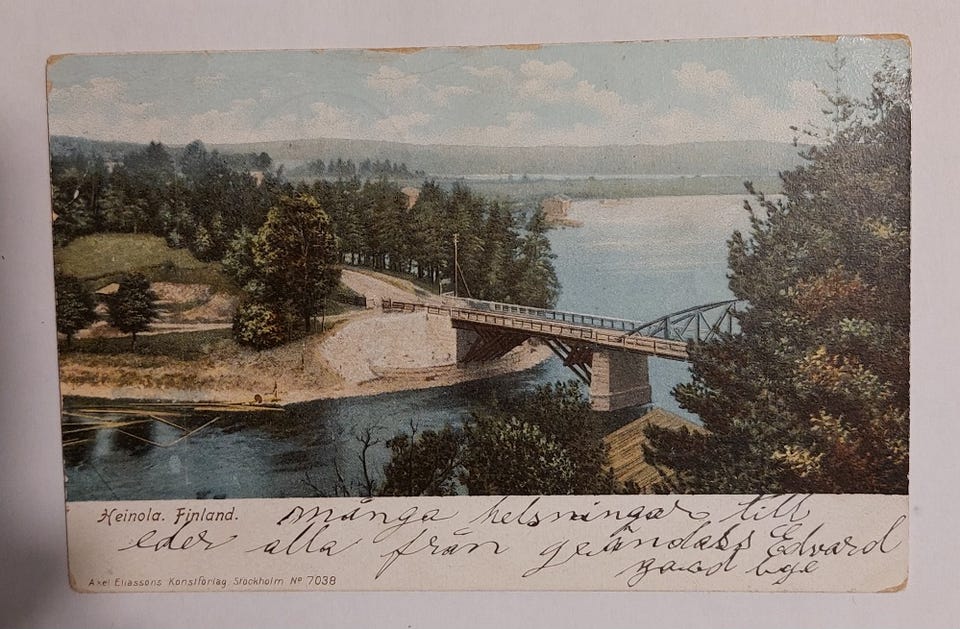 Heinola. Finland.
många helsningar till
eder alla från Edvard
Axel Eliassons Konstförlag Stockholm Nº 7038